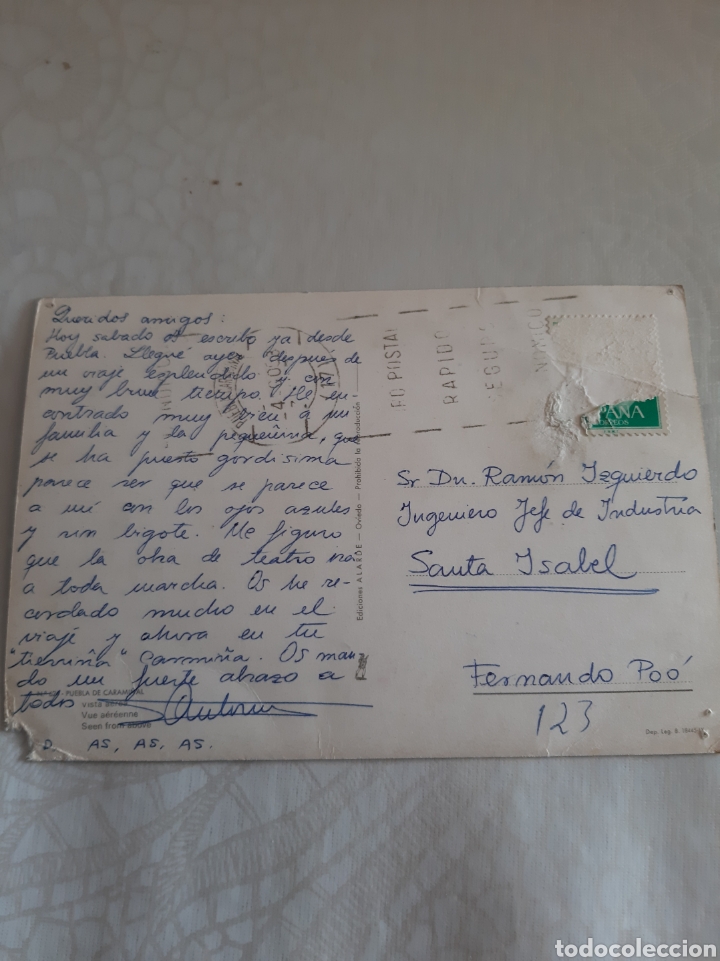 Queridos amigos:
Hoy sabado os escribo ya desde
Puebla. Llegué ayer despues de
un viaje esplendido y con
muy buen tiempo. He en-
contrado muy bien á mi
familia y la pequeñina, que
se ha puesto gordisima
parece ser que se parece
a mi con los ojos azules
y sin bigote. Me figuro
que la obra de teatro irá
a toda marcha. Os he re-
cordado mucho en el
viaje y ahora en tu
"tierriña" Carmiña. Os man-
do un fuerte abrazo a
todos
PUEBLA DE CARAMIÑAL
vista aérea
Vue aéreenne
Seen from above
D. AS, AS, AS.
Ediciones ALARDE — Oviedo — Prohibida la reproducción
PO POSTAL
RAPIDO
SEGURO
ESPAÑA
CORREOS
Sr Dn. Ramón Izquierdo
Ingeniero Jefe de Industria
Santa Isabel
Fernando Poó
123
Dep. Leg. B.
todocoleccion